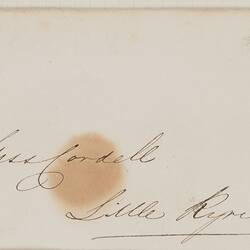 iss Cordell
Little Ryri